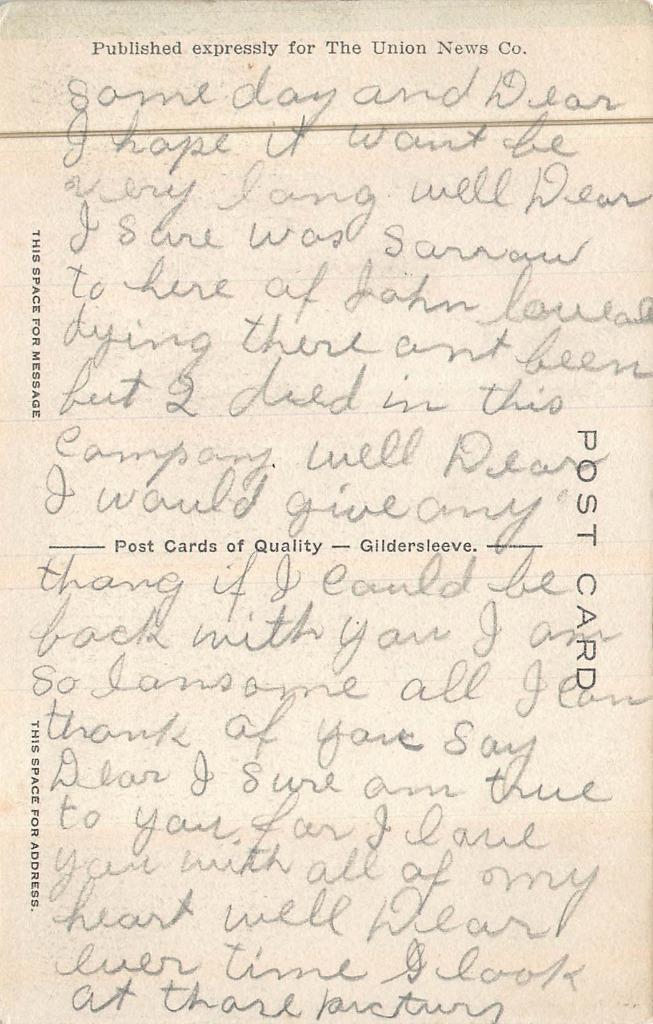 Published expressly for The Union News Co.
some day and Dear
I hope it wont be
very long well Dear
I sure was sarrow
to here of John
dying there ant been
but 2 died in this
Company well Dear
I would give any
Post Cards of Quality — Gildersleeve.
thang if I could be
back with you I am
so lonsome all I can
thank of you say
Dear I sure am true
to you for I love
you with all of my
heart well Dear
ever time I look
at those picturs
THIS SPACE FOR MESSAGE
THIS SPACE FOR ADDRESS.
POST CARD